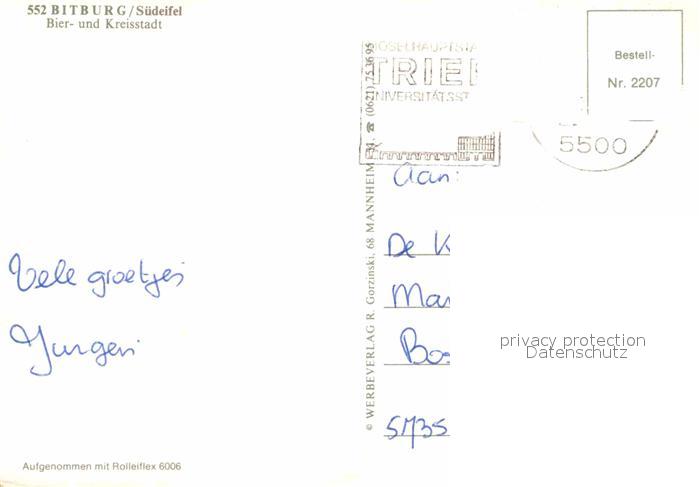 552 BITBURG/Südeifel
Bier- und Kreisstadt
MOSELHAUPTSTA
TRIER
UNIVERSITÄTSST
Bestell-
Nr. 2207
5500
© WERBEVERLAG R. Gorzinski, 68 MANNHEIM 31, ☎ (0621) 75 36 95
Aan:
De K
Mar
Bos
5735
Vele groetjes
Jurgen
privacy protection
Datenschutz
Aufgenommen mit Rolleiflex 6006